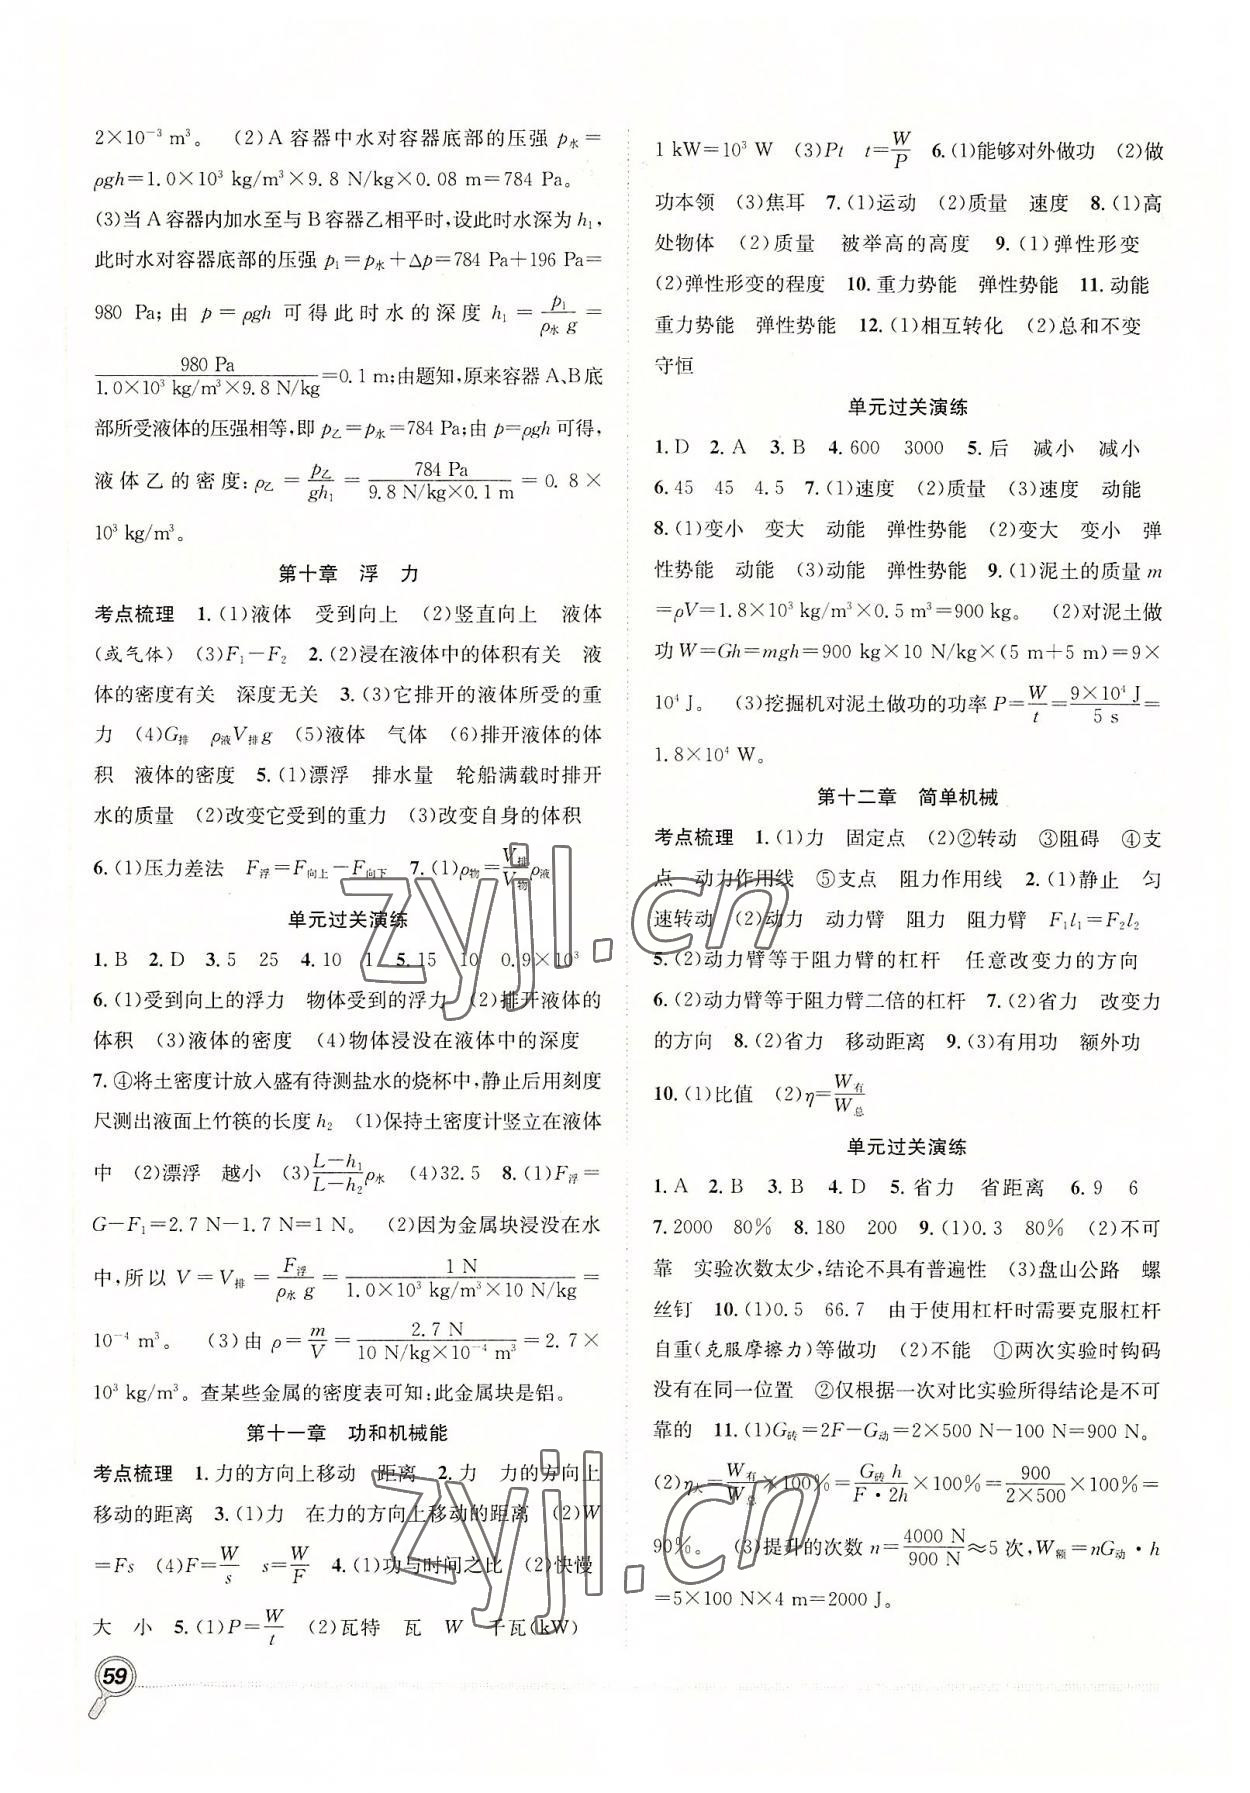 2×10⁻³ m³。 (2)A 容器中水对容器底部的压强 p水=
ρgh=1.0×10³ kg/m³×9.8 N/kg×0.08 m=784 Pa。
(3)当 A 容器内加水至与 B 容器乙相平时,设此时水深为 h₁,
此时水对容器底部的压强 p₁=p水+Δp=784 Pa+196 Pa=
980 Pa;由 p=ρgh 可得此时水的深度 h₁=p₁/(ρ水 g)=
980 Pa/(1.0×10³ kg/m³×9.8 N/kg)=0.1 m;由题知,原来容器 A、B 底
部所受液体的压强相等,即 p乙=p水=784 Pa;由 p=ρgh 可得,
液体乙的密度:ρ乙=p乙/(gh₁)=784 Pa/(9.8 N/kg×0.1 m)=0.8×
10³ kg/m³。
第十章 浮 力
考点梳理 1.(1)液体 受到向上 (2)竖直向上 液体
(或气体) (3)F₁-F₂ 2.(2)浸在液体中的体积有关 液
体的密度有关 深度无关 3.(3)它排开的液体所受的重
力 (4)G排 ρ液V排g (5)液体 气体 (6)排开液体的体
积 液体的密度 5.(1)漂浮 排水量 轮船满载时排开
水的质量 (2)改变它受到的重力 (3)改变自身的体积
6.(1)压力差法 F浮=F向上-F向下 7.(1)ρ物=V排/V物 ρ液
单元过关演练
1.B 2.D 3.5 25 4.10 1 5.15 10 0.9×10³
6.(1)受到向上的浮力 物体受到的浮力 (2)排开液体的
体积 (3)液体的密度 (4)物体浸没在液体中的深度
7.④将土密度计放入盛有待测盐水的烧杯中,静止后用刻度
尺测出液面上竹筷的长度 h₂ (1)保持土密度计竖立在液体
中 (2)漂浮 越小 (3)(L-h₁)/(L-h₂) ρ水 (4)32.5 8.(1)F浮=
G-F₁=2.7 N-1.7 N=1 N。 (2)因为金属块浸没在水
中,所以 V=V排=F浮/(ρ水 g)=1 N/(1.0×10³ kg/m³×10 N/kg)=
10⁻⁴ m³。 (3)由 ρ=m/V=2.7 N/(10 N/kg×10⁻⁴ m³)=2.7×
10³ kg/m³。查某些金属的密度表可知:此金属块是铝。
第十一章 功和机械能
考点梳理 1.力的方向上移动 距离 2.力 力的方向上
移动的距离 3.(1)力 在力的方向上移动的距离 (2)W
=Fs (4)F=W/s s=W/F 4.(1)功与时间之比 (2)快慢
大 小 5.(1)P=W/t (2)瓦特 瓦 W 千瓦(kW)
59
1 kW=10³ W (3)Pt t=W/P 6.(1)能够对外做功 (2)做
功本领 (3)焦耳 7.(1)运动 (2)质量 速度 8.(1)高
处物体 (2)质量 被举高的高度 9.(1)弹性形变
(2)弹性形变的程度 10.重力势能 弹性势能 11.动能
重力势能 弹性势能 12.(1)相互转化 (2)总和不变
守恒
单元过关演练
1.D 2.A 3.B 4.600 3000 5.后 减小 减小
6.45 45 4.5 7.(1)速度 (2)质量 (3)速度 动能
8.(1)变小 变大 动能 弹性势能 (2)变大 变小 弹
性势能 动能 (3)动能 弹性势能 9.(1)泥土的质量 m
=ρV=1.8×10³ kg/m³×0.5 m³=900 kg。 (2)对泥土做
功 W=Gh=mgh=900 kg×10 N/kg×(5 m+5 m)=9×
10⁴ J。 (3)挖掘机对泥土做功的功率 P=W/t=9×10⁴ J/5 s=
1.8×10⁴ W。
第十二章 简单机械
考点梳理 1.(1)力 固定点 (2)②转动 ③阻碍 ④支
点 动力作用线 ⑤支点 阻力作用线 2.(1)静止 匀
速转动 (2)动力 动力臂 阻力 阻力臂 F₁l₁=F₂l₂
5.(2)动力臂等于阻力臂的杠杆 任意改变力的方向
6.(2)动力臂等于阻力臂二倍的杠杆 7.(2)省力 改变力
的方向 8.(2)省力 移动距离 9.(3)有用功 额外功
10.(1)比值 (2)η=W有/W总
单元过关演练
1.A 2.B 3.B 4.D 5.省力 省距离 6.9 6
7.2000 80% 8.180 200 9.(1)0.3 80% (2)不可
靠 实验次数太少,结论不具有普遍性 (3)盘山公路 螺
丝钉 10.(1)0.5 66.7 由于使用杠杆时需要克服杠杆
自重(克服摩擦力)等做功 (2)不能 ①两次实验时钩码
没有在同一位置 ②仅根据一次对比实验所得结论是不可
靠的 11.(1)G砖=2F-G动=2×500 N-100 N=900 N。
(2)η大=W有/W总×100%=G砖 h/(F·2h)×100%=900/(2×500)×100%=
90%。 (3)提升的次数 n=4000 N/900 N≈5 次,W额=nG动·h
=5×100 N×4 m=2000 J。
zyjl.cn
zyjl.cn